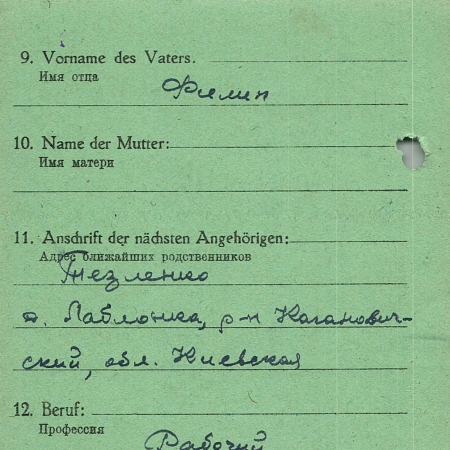 9. Vorname des Vaters.
Имя отца
Филип
10. Name der Mutter:
Имя матери
11. Anschrift der nächsten Angehörigen:
Адрес ближайших родственников
Тезленко
д. Лаблонка, р-н Каганович-
ский, обл. Киевская
12. Beruf:
Профессия
Рабочий